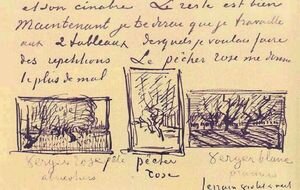 et son cinabre. Le reste est bien
Maintenant je te dirai que je travaille
aux 2 tableaux desquels je voulais faire
des repetitions Le pêcher rose me donne
le plus de mal
verger rose pâle
abricotiers
pêcher
rose
verger blanc
pruniers
terrain violet